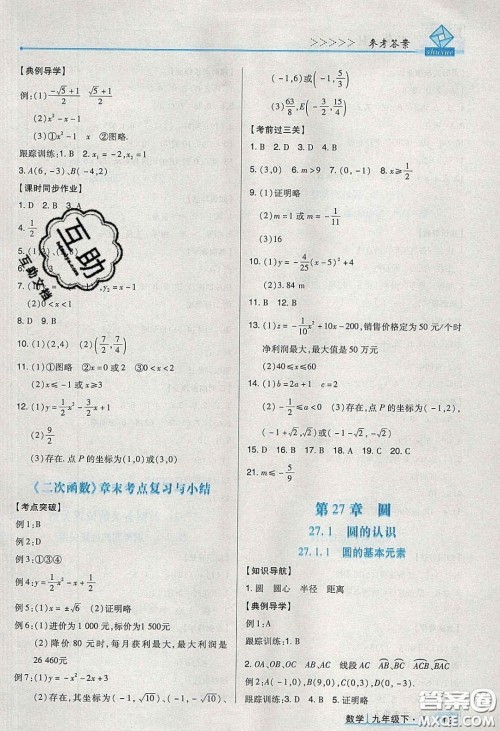 参考答案
【典例导学】
例:(1) (-√5+1)/2
(2)x²-x-1
(3)①x²-1 ②图略.
跟踪训练:1. B 2. x₁=-2,x₂=1
3. A(6,-3)、B(-4,2)
【课时同步作业】
1. D 2. A 3. A
4. 1/2
(2)0<x<1
8. D 9. B
10. (1)(2,4) (2)(7/2,7/2)
11. (1)①图略 ②x=0或2 ③0<x<2
(2)图略 x≤0或x≥3
12. (1)y=1/2x²-3/2x+1
(2)9/2
(3)存在. 点P的坐标为(1,0)或(3,0)
《二次函数》章末考点复习与小结
【考点突破】
例1:B
例2:①③④
例3:①③④
例4:y=1/2x²+1/2
例5:(1)x=±√6 (2)证明略
例6:(1)进价为1 000元,标价为1 300元
(2)降价80元时,每月获利最大,最大利润是
26 460元
例7:(1)y=-x²-2x+3
(2)存在,坐标为(-1,-√10)、(-1,√10)、
(-1,6)或(-1,5/3)
(3)63/8,E(-3/2,15/4)
【考前过三关】
1. D 2. D 3. B 4. C
5. (1,3) 6. m>9 7. (0,0) 8. x≥1/2
9. (1)证明略
(2)m=-1或-1/11
(3)证明略
10. (1)y=-4/25(x-5)²+4
(2)3.84 m
11. B 12. B
13. (1)z=-1/10x²+10x-200,销售价格定为50元/个时
净利润最大,最大值是50万元
(2)40≤x≤60
14. (1)b=2a+1 (2)a=-1/2
(3)存在,P的坐标是(-1,2),
(-1+√2,√2)或(-1-√2,-√2)
15. B 16. A 17. B 18. C 19. C 20. C
21. m≤-5/9
第27章 圆
27.1 圆的认识
27.1.1 圆的基本元素
【知识导航】
1. 圆 圆心 半径 距离
【典例导学】
例1:A
跟踪训练:1. B
2. OA、OB、OC AB、BC、AC 线段AC
例2:9.1
跟踪训练:3. A
数学 九年级下·
互助
互助文档
答案圈